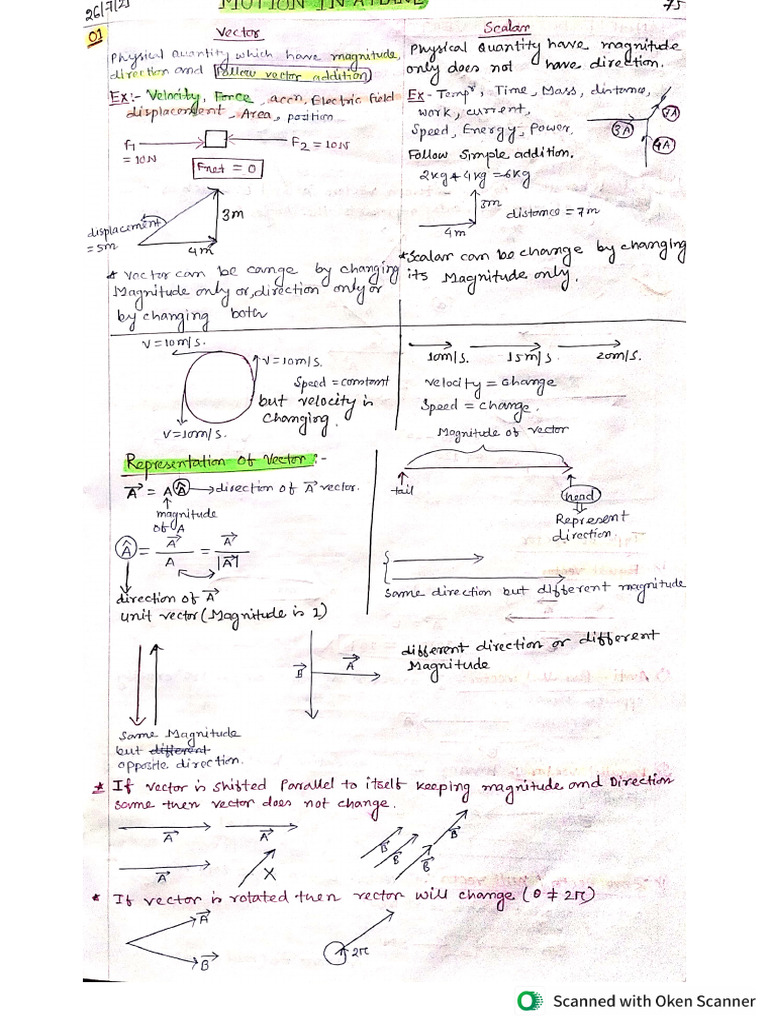 26/7/21
MOTION IN A PLANE
75
01
Vector
Physical Quantity which have magnitude,
direction and follow vector addition
Ex:- Velocity, Force, accn, Electric field
displacement, Area, position
F1 = 10N
F2 = 10N
Fnet = 0
displacement = 5m
3m
4m
* Vactor can be cange by changing
Magnitude only or, direction only or
by changing both
Scalar
Physical Quantity have magnitude
only does not have direction.
Ex- Tempr, Time, Mass, distance,
work, current,
Speed, Energy, Power,
Follow Simple addition.
3A
7A
4A
2kg + 4kg = 6kg
3m
4m
distance = 7m
* Scalar can be change by changing
its Magnitude only.
V = 10m/s.
V = 10m/s.
Speed = constant
but velocity is
changing.
V = 10m/s.
10m/s.
15m/s
20m/s.
velocity = change
Speed = change.
Representation of Vector :-
A⃗ = A Â → direction of A⃗ vector.
magnitude
of A
Â = A⃗/A = A⃗/|A⃗|
direction of A⃗
unit vector (Magnitude is 1)
Magnitude of vector
tail
head
Represent
direction.
Same direction but different magnitude
Same Magnitude
but different
opposite direction.
B⃗
A⃗
different direction or different
Magnitude
* If vector is shifted Parallel to itself keeping magnitude and Direction
same then vector does not change.
A⃗
A⃗
A⃗
X
B⃗
B⃗
B⃗
B⃗
* If vector is rotated then vector will change (θ ≠ 2π)
A⃗
B⃗
2π
Scanned with Oken Scanner